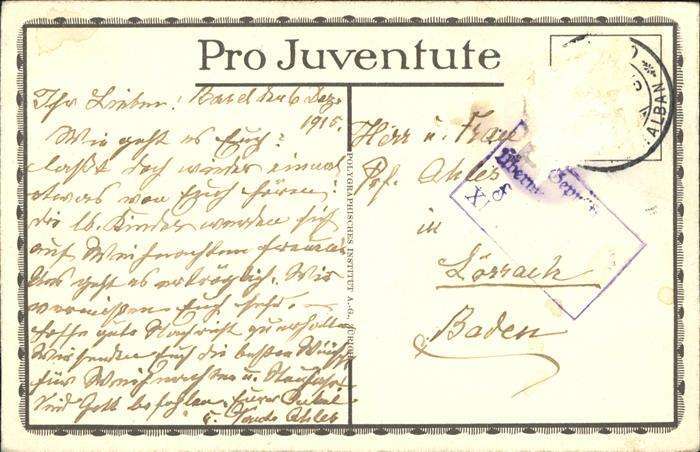 Pro Juventute
Ihr Lieben! Basel den 6 Dez.
1915.
Wie geht es Euch?
Laßt doch wieder einmal
etwas von Euch hören!
Die lb. Kinder werden sich
auf Weihnachten freuen.
Uns geht es erträglich. Wir
vermissen Euch sehr. –
hoffe gute Nachricht zu erhalten
Wir senden Euch die besten Wünsche
für Weihnachten u. Neujahr
Seid Gott befohlen. Eure Onkel
u. Tante Ahles
POLYGRAPHISCHES INSTITUT A.-G., ZÜRICH
Herr u. Frau
Prof. Ahles
in
Lörrach
Baden
ALBAN
Geprüft